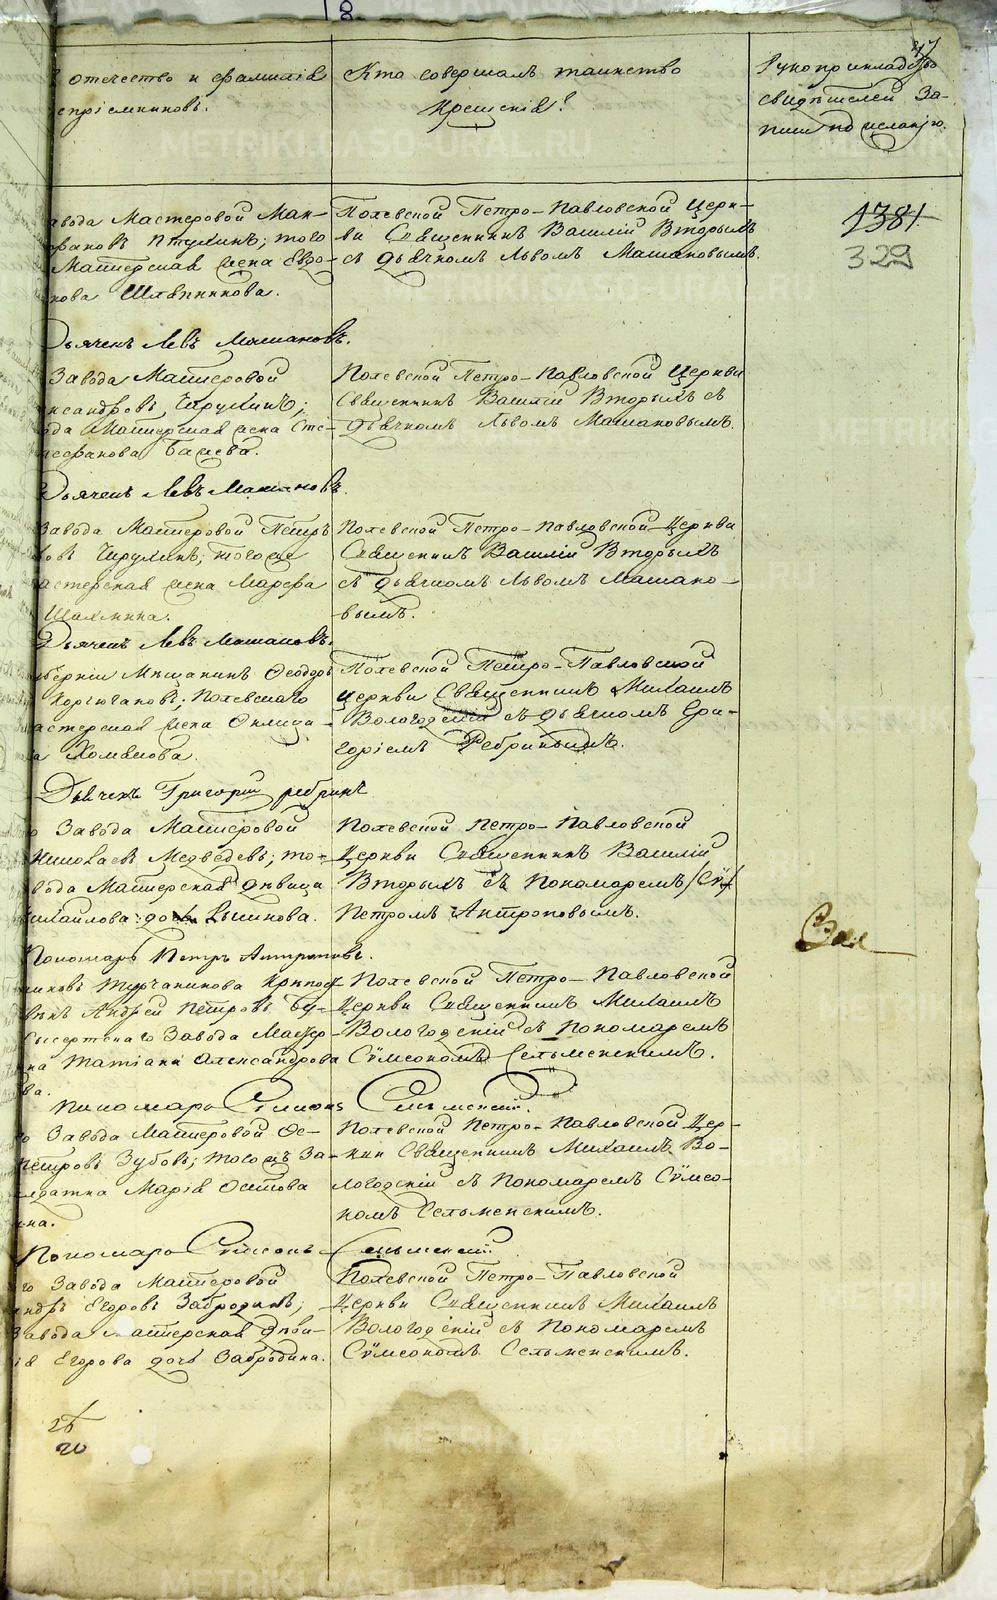 8.
47
отечество и фамилія
спріемниковъ.
Кто совершалъ таинство
крещенія?
Рукоприкладство
свидѣтелей за-
писи по желанію.
авода Мастеровой Мак-
Птухинъ; того
Мастерская жена Евро-
кова Шляпникова.
Полевской Петро-Павловской Церк-
ви Священникъ Василій Вторыхъ
съ дьячкомъ Львомъ Машановымъ.
1381.
329
Дьячекъ Левъ Машановъ.
Завода Мастеровой
ксандровъ Чирухинъ;
ода Мастерская жена Сте-
тефанова Бажева.
Полевской Петро-Павловской Церкви
Священникъ Василій Вторыхъ съ
дьячкомъ Львомъ Машановымъ.
Дьячекъ Левъ Машановъ.
Завода Мастеровой Петръ
ковъ Чирухинъ; того же
астерская жена Марѳа
Шахмина.
Полевской Петро-Павловской Церкви
Священникъ Василій Вторыхъ
съ дьячкомъ Львомъ Машано-
вымъ.
Дьячекъ Левъ Машановъ.
уберніи Мѣщанинъ Ѳеодоръ
Полевскаго
астерская жена
а Хомякова.
Полевской Петро-Павловской
Церкви Священникъ Михаилъ
Вологодскій съ дьячкомъ Гри-
горіемъ Ребринымъ.
Дьячекъ Григорій Ребринъ
о Завода Мастеровой
Николаевъ Медведевъ; то-
вода Мастерская дѣвица
ихайлова дочь
Полевской Петро-Павловской
Церкви Священникъ Василій
Вторыхъ съ Пономаремъ
Петромъ Антроповымъ.
Пономарь Петръ Антроповъ.
Турчанинова
Андрей Петровъ Бу-
Сысертскаго Завода Мастер-
на Татіана Александрова
ва.
Полевской Петро-Павловской
Церкви Священникъ Михаилъ
Вологодскій съ Пономаремъ
Сѵмеономъ Сельменскимъ.
Пономарь Симеонъ Сельменскій.
о Завода Мастеровой
Петровъ Зубовъ; того жъ За-
Марія Осипова
ина.
Полевской Петро-Павловской Цер-
кви Священникъ Михаилъ Во-
логодскій съ Пономаремъ Сѵмео-
номъ Сельменскимъ.
Пономарь Симеонъ Сельменскій.
го Завода Мастеровой
андръ Егоровъ Забродинъ;
Завода Мастерская дѣви-
ія Егорова дочь Забродина.
Полевской Петро-Павловской
Церкви Священникъ Михаилъ
Вологодскій съ Пономаремъ
Сѵмеономъ Сельменскимъ.
20